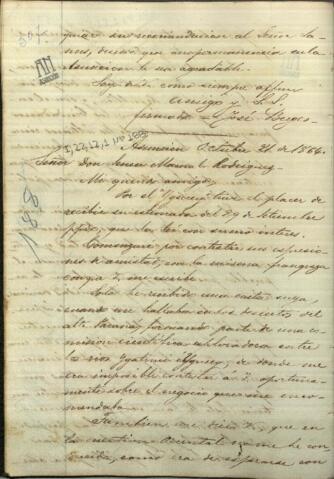 quiero su recomendacion al Señor
nos, deseo que su permanencia en la
Asuncion le sea agradable.
Soy de V. como siempre affmo
amigo y S. S.
firmado = José Berges
I, 22, 12, 1 No
Asuncion Octubre 21 de 1864.
Señor Don Rodriguez
Mi querido amigo,
Por el "Ygurey" tuve el placer de
recibir su estimada del 29 de Setiembre
ppdo, que la leí con sumo interes.
Comenzaré por contestar sus espresio-
nes de amistad, con la misma franqueza
con que V. me escribe.
Solo he recibido una carta suya,
cuando me hallaba en los desiertos del
alto Paraná, formando parte de una co-
mision cientifica esploradora entre
los rios Ygatimí é Yguazú, de donde me
era imposible contestar á V. oportuna-
mente sobre el negocio que se me enco-
mendaba.
Tambien me dice V. que en
la cuestion Oriental me he con-
ducido, como era de esperarse con